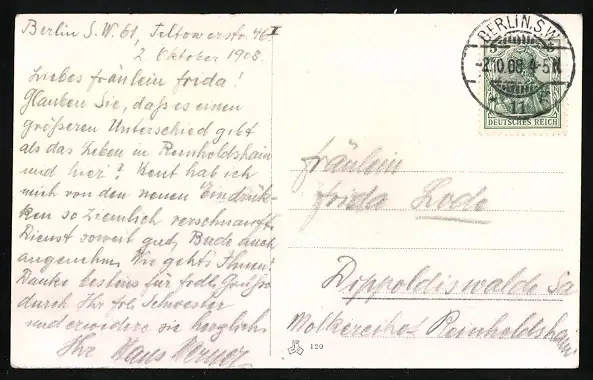 Berlin S.W. 61, Teltowerstr. 46 I
2. Oktober 1908.
Liebes Fräulein Frida!
Glauben Sie, daß es einen
größeren Unterschied gibt
als das Leben in Reinholdshain
und hier? Heut hab ich
mich von den neuen Eindrük-
ken so ziemlich verschnauft.
Dienst soweit gut, Bude auch
angenehm. Wie geht's Ihnen?
Danke bestens für frdl. Grüße
durch Ihr frl. Schwester
und erwidere sie herzlich.
Ihr Hans Werner
BERLIN.S.W.
2.10.08. 4-5 N.
11
5
DEUTSCHES REICH
Fräulein
Frida Lode
Dippoldiswalde Sa
Molkereihof Reinholdshain
120